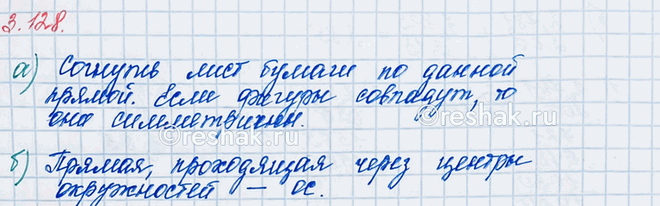 3.128.
а) Согнуть лист бумаги по данной
прямой. Если фигуры совпадут, то
они симметричны.
б) Прямая, проходящая через центры
окружностей — ос.